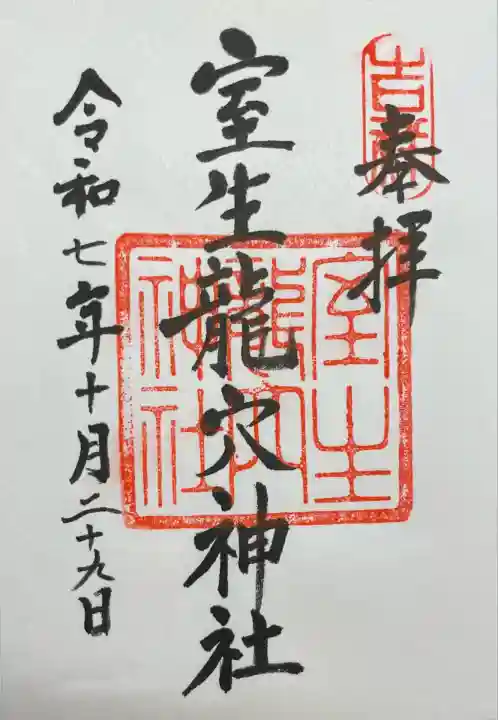 奉拝
室生龍穴神社
令和七年十月二十九日
室生
龍穴
神社